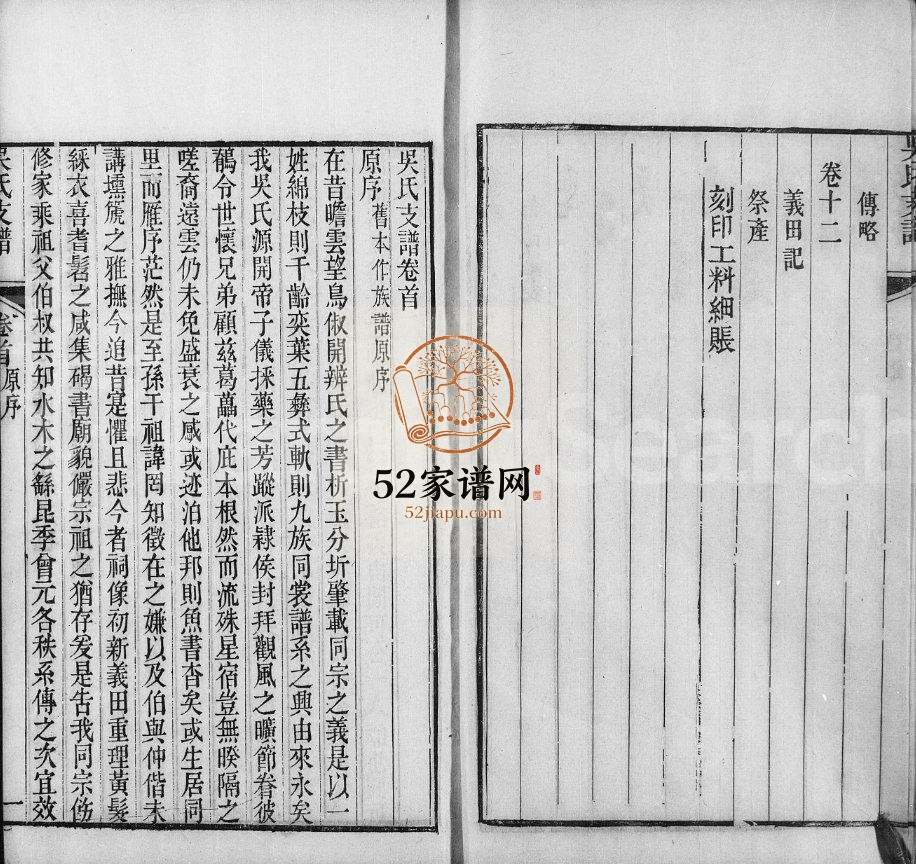 吳氏支譜
傳略
卷十二
義田記
祭產
刻印工料細賬
吳氏支譜卷首
原序 舊本作族譜原序
在昔瞻雲望鳥俶開辨氏之書析玉分圻肇載同宗之義是以一
姓綿枝則千齡奕葉五彝式軌則九族同裳譜系之興由來永矣
我吳氏源開帝子儀採藥之芳蹤派隸侯封拜觀風之曠節眷彼
鶺令世懷兄弟顧茲葛藟代庇本根然而流殊星宿豈無暌隔之
嗟裔遠雲仍未免盛衰之感或迹泊他邦則魚書杳矣或生居同
里而雁序茫然是至孫干祖諱罔知徵在之嫌以及伯與仲偕未
講壎箎之雅撫今追昔寔懼且悲今者祠像初新義田重理黃髮
綵衣喜耆髫之咸集碣書廟貌儼宗祖之猶存爰是告我同宗仿
修家乘祖父伯叔共知水木之繇昆季曾元各秩系傳之次宜效
吳氏支譜
卷首 原序
一
52家谱网
52jiapu.com